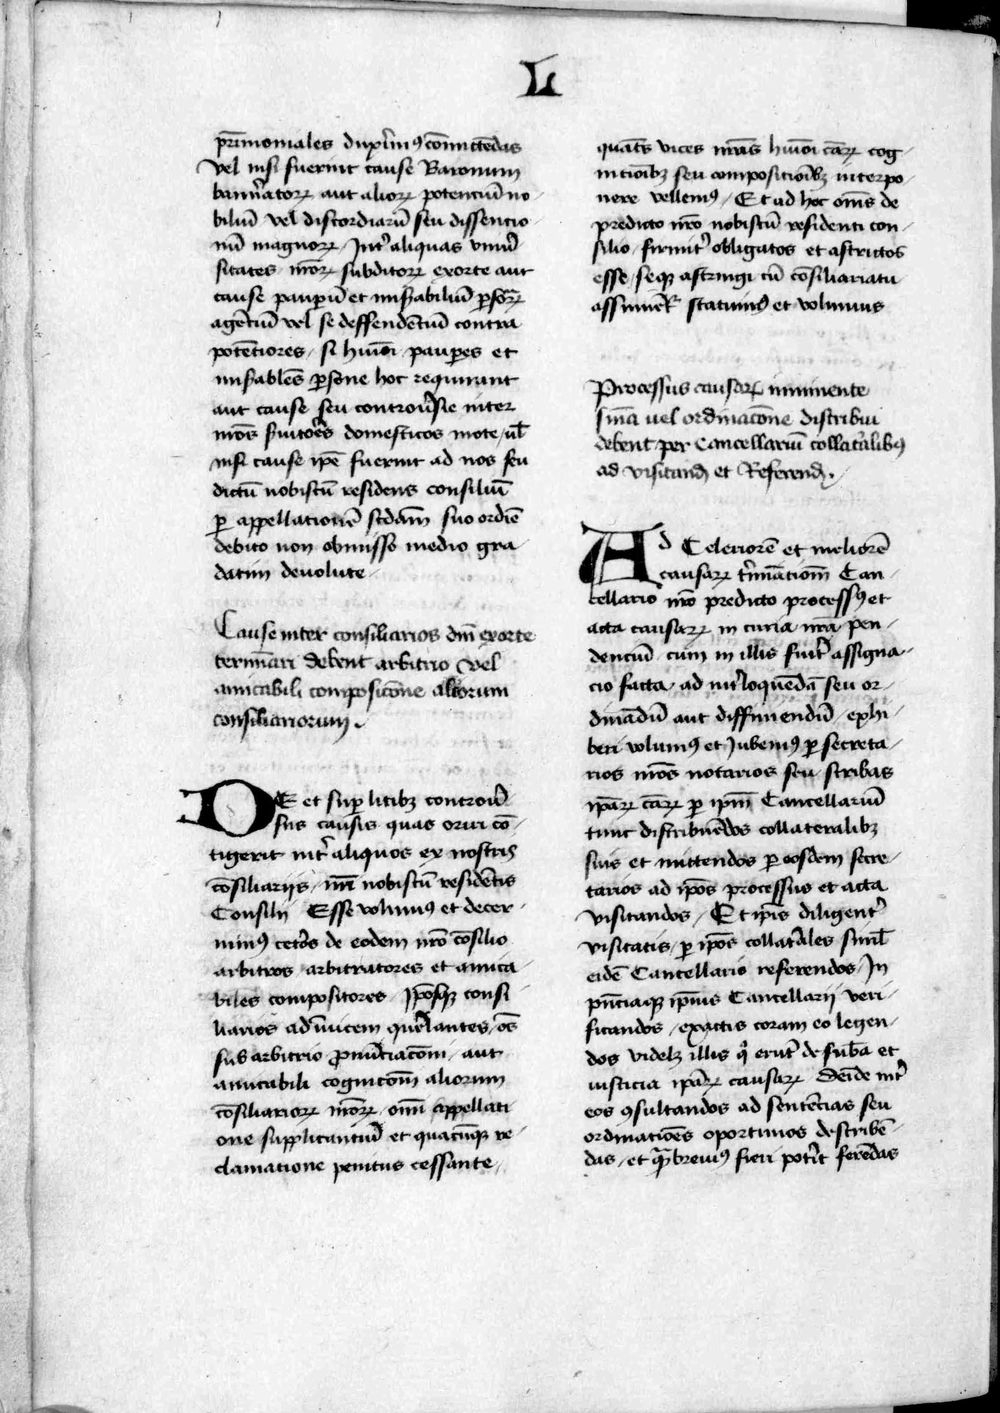 L
pr̄imoniales duxim⁹ cōmictēdas
vel nisi fuerint cause Baronum
bannat̄orꝝ aut aliorꝝ potenciū no-
biliū vel discordiarū seu dissentio-
nū magnorꝝ / Int̄ aliquas univ̄-
sitates nr̄orꝝ subditorꝝ exorte aut
cause paupū et misabiliū psōarꝝ
agētiū vel se deffendētiū contra
potētiores / si huiōi paupes et
misabiles psone hoc requirant
aut cause seu controv̄sie inter
nr̄os s̄vitores domesticos mote / ul̄
nisi cause ip̄e fuerint ad nos seu
dictū nobiscū residens consiliū
p appellationē scd̄am suo ordīe
debito non obmisso medio gra-
datim devolute
Cause inter consiliarios dn̄i exorte
termin̄ari debent arbitrio vel
amicabili composicōne aliorum
consiliariorum
DE et sup litibꝫ controv̄-
siis causis quas oriri cō-
tigerit int̄ aliquos ex nostris
cōsiliariis / nr̄i nobiscū residētis
Consilii Esse volumus et decer-
nim⁹ cet̄os de eodem nr̄o cōsilio
arbitros arbitratores et amica-
biles compositores Ip̄osqꝫ consi-
liarios ad īvicem quer̄lantes / os̄
sub arbitrio ꝓnūciacōni aut
amicabili cognicōni aliorum
cōsiliariorꝝ nr̄orꝝ / om̄i appellati
one supplicantiū et quacūqꝫ re-
clamatione penitus cessante
quat̄s vices nr̄as huiōi cārꝝ cog-
nicioībꝫ seu compositioībꝫ interpo-
nere vellem⁹ / Et ad hoc om̄s de
predicto nr̄o nobiscū residenti con-
silio firmit̄ obligatos et astrictos
esse / seqꝫ astringi cū cōsiliariatū
assumēt statuim⁹ et volumus
Processus causarꝝ iminente
sn̄ia vel ordinacōne distribui
debent per Cancellariū collat̄alibꝫ
ad visitand̄ et Referend̄.
Ad Celeriorē et meliorē
causarꝝ t̄minationē Can-
cellario nr̄o predicto process⁹ et
acta causarꝝ in curia nr̄a pen-
denciū cum in illis fuit̄ assigna-
cio facta / ad int̄loquēdā seu or-
dināduȷ̄ aut diffiniendū / exhi-
beri volum⁹ et Jubem⁹ p secreta-
rios nr̄os notarios seu scribas
ip̄arꝝ cārꝝ p ip̄m Cancellariū
tunc distribuēdos collateralibꝫ
suis et mittendos p eosdem secre-
tarios ad ip̄os processus et acta
visitandos / Et ip̄is diligent̄
visitatis / p ip̄os collat̄ales simul̄
eidē Cancellario referendos / In
pn̄ciaqꝫ ip̄ius Cancellarii veri-
ficandos / exactis coram eo legen-
dos videlꝫ illis q̄ erūt de sub̄a et
iusticia ip̄arꝝ causarꝝ Deīde int̄
eos ꝯsultandos ad sentēcias seu
ordinatiōes oportunos describē-
das / et q̄ brevi⁹ fieri pot̄it ferēdas